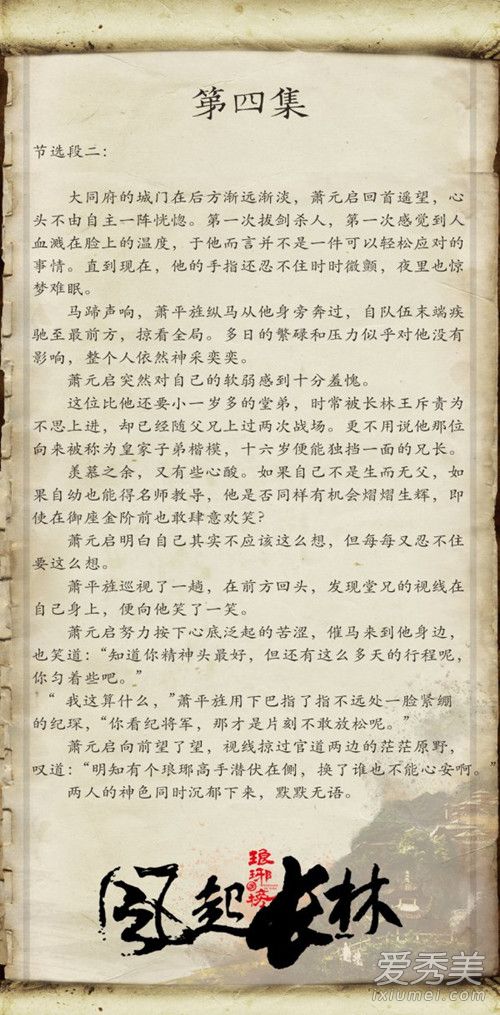 第四集
节选段二：
大同府的城门在后方渐远渐淡，萧元启回首遥望，心
头不由自主一阵恍惚。第一次拔剑杀人，第一次感觉到人
血溅在脸上的温度，于他而言并不是一件可以轻松应对的
事情。直到现在，他的手指还忍不住时时微颤，夜里也惊
梦难眠。
马蹄声响，萧平旌纵马从他身旁奔过，自队伍末端疾
驰至最前方，掠看全局。多日的繁碌和压力似乎对他没有
影响，整个人依然神采奕奕。
萧元启突然对自己的软弱感到十分羞愧。
这位比他还要小一岁多的堂弟，时常被长林王斥责为
不思上进，却已经随父兄上过两次战场。更不用说他那位
向来被称为皇家子弟楷模，十六岁便能独挡一面的兄长。
羡慕之余，又有些心酸。如果自己不是生而无父，如
果自幼也能得名师教导，他是否同样有机会熠熠生辉，即
使在御座金阶前也敢肆意欢笑？
萧元启明白自己其实不应该这么想，但每每又忍不住
要这么想。
萧平旌巡视了一趟，在前方回头，发现堂兄的视线在
自己身上，便向他笑了一笑。
萧元启努力按下心底泛起的苦涩，催马来到他身边，
也笑道：“知道你精神头最好，但还有这么多天的行程呢，
你匀着些吧。”
“我这算什么，”萧平旌用下巴指了指不远处一脸紧绷
的纪琛，“你看纪将军，那才是片刻不敢放松呢。”
萧元启向前望了望，视线掠过官道两边的茫茫原野，
叹道：“明知有个琅琊高手潜伏在侧，换了谁也不能心安啊。”
两人的神色同时沉郁下来，默默无语。
琅琊榜
风起长林
爱秀美
ixiumei.com